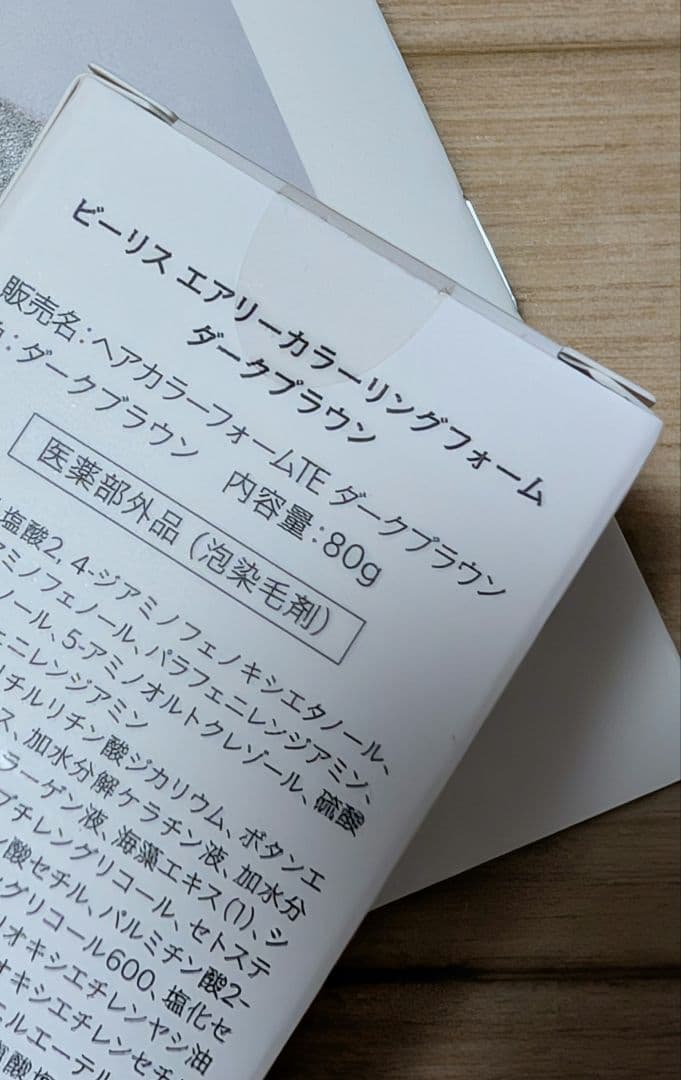 ビーリス エアリーカラーリングフォーム
ダークブラウン
販売名:ヘアカラーフォームTE ダークブラウン
:ダークブラウン 内容量:80g
医薬部外品(泡染毛剤)
塩酸2, 4-ジアミノフェノキシエタノール、
アミノフェノール、パラフェニレンジアミン、
ノール、5-アミノオルトクレゾール、硫酸
ニレンジアミン
チルリチン酸ジカリウム、ボタンエ
ス、加水分解ケラチン液、加水分
ラーゲン液、海藻エキス(1)、シ
ブチレングリコール、セトステ
ン酸セチル、パルミチン酸2-
ングリコール600、塩化セ
オキシエチレンヤシ油
オキシエチレンセチ
ルエーテル